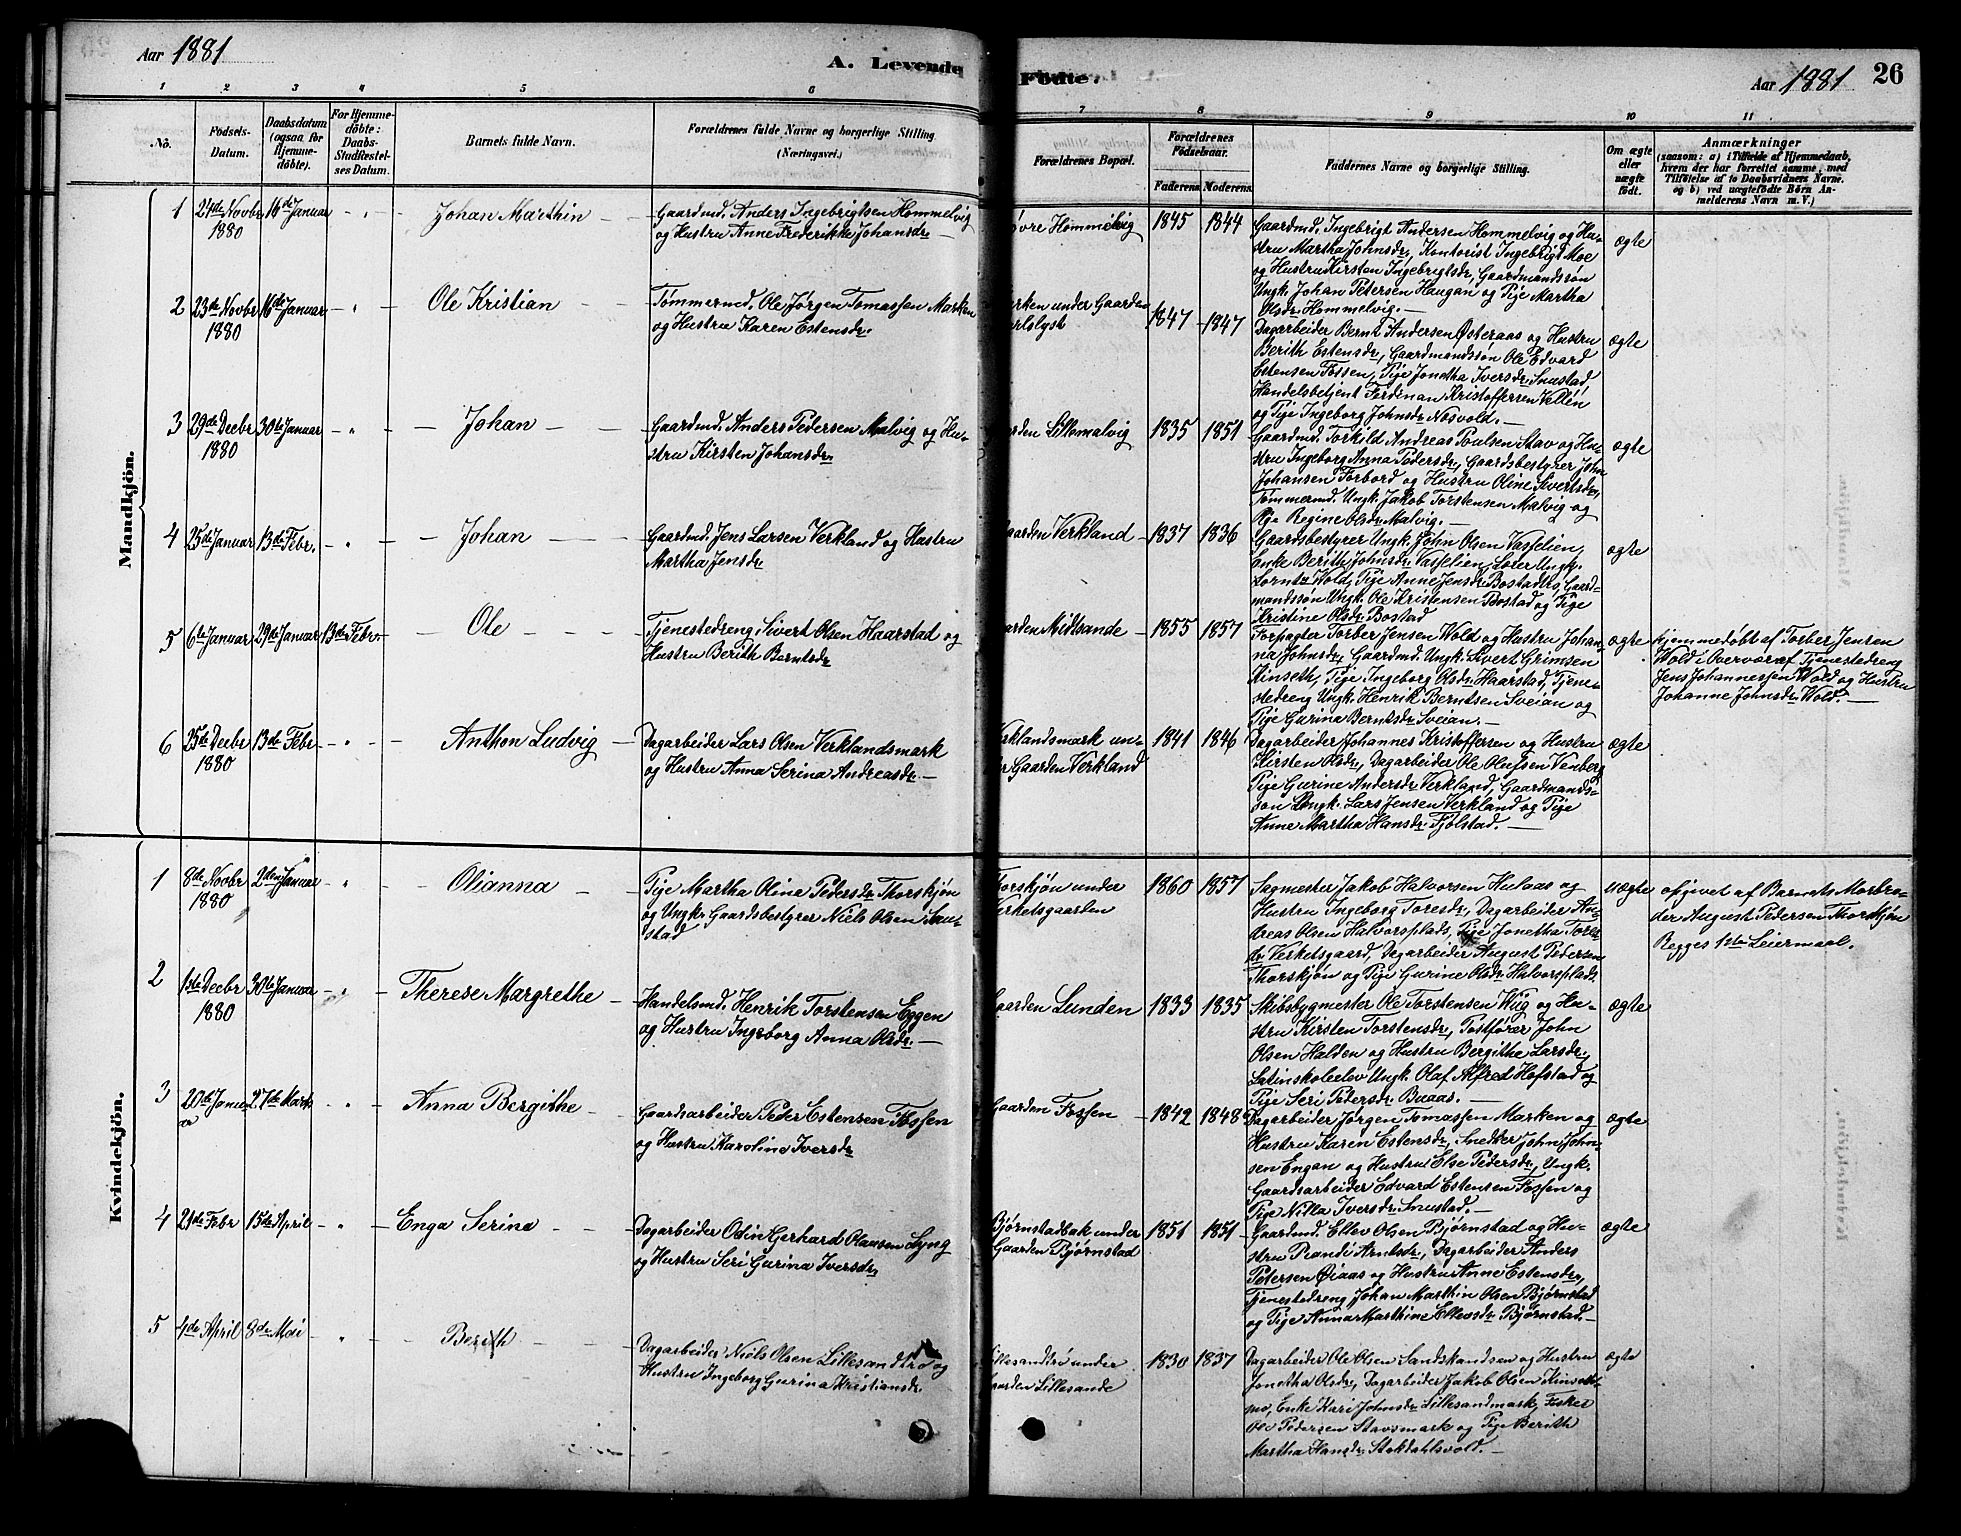 Aar 1881
A. Levende
Födte.
Aar 1881
26
1 2 3 4 5 6 7 8 9 10 11
No.
Födsels-
Datum.
Daabsdatum
(ogsaa for
Hjemme-
döbte).
For Hjemme-
döbte:
Daabs-
Stadfæstel-
ses Datum.
Barnets fulde Navn.
Forældrenes fulde Navne og borgerlige Stilling
(Næringsvei.)
Forældrenes Bopæl.
Forældrenes
Födselsaar.
Faderens. Moderens.
Faddernes Navne og borgerlige Stilling.
Om ægte
eller
uægte
födt.
Anmærkninger
(saasom: a) i Tilfælde af Hjemmedaab,
hvem der har forrettet samme, med
Tilföielse af to Daabsvidners Navne,
og b) ved uægtefödte Börn An-
melderens Navn m. V.)
Mandkjön.
1
24de Novbr
1880
16de Januar
Johan Marthin
Gaardmd. Anders Ingebrigtsen Hommelvig
og Hustru Anne Frederikke Johansdr.
øvre Hommelvig
1845
1844
Gaardmd. Ingebrigt Andersen Hommelvig og Hu-
stru Martha Johnsdr., Kontorist Ingebrigt Moe
og Hustru Kirsten Ingebrigtsdr., Gaardmandssøn
Ungk. Johan Petersen Haugan og Pige Martha
Olsdr. Hommelvig.
ægte
2
23de Novbr
1880
16de Januar
Ole Kristian
Tømmermd. Ole Jørgen Tomassen Marken
og Hustru Karen Estensdr.
rken under Gaarden
rtslyst
1847
1847
Dagarbeider Bernt Andersen Østeraas og Hustru
Berith Estensdr., Gaardmandssøn Ole Edvard
Estensen Fossen, Pige Jonetha Iversdr. Snustad
Handelsbetjent Ferdinan Kristoffersen Vellén
og Pige Ingeborg Johnsdr. Nosvold.
ægte
3
29de Decbr
1880
30te Januar
Johan
Gaardmd. Anders Pedersen Malvig og Hu-
stru Kirsten Johansdr.
rden Lillemalvig
1835
1851
Gaardmd. Torkild Andreas Poulsen Stav og Hu-
stru Ingeborg Anna Pedersdr., Gaardsbestyrer John
Johansen Forbord og Hustru Oline Sivertsdr.,
Tømmermd. Ungk. Jakob Torstensen Malvig og
Pige Regine Olsdr. Malvig.
ægte
4
25de Januar
13de Febr.
Johan
Gaardmd. Jens Larsen Verkland og Hustru
Martha Jensdr.
aarden Verkland
1837
1836
Gaardsbestyrer Ungk. John Olsen Vasselien,
Enke Berith Johnsdr. Vasselien, Lærer Ungk.
Lorntz Wold, Pige Anne Jensdr. Bostad, Gaard-
mandssøn Ungk. Ole Kristensen Bostad og Pige
Kristine Olsdr. Bostad
ægte
5
6te Januar
29de Januar
13de Febr.
Ole
Tjenestedreng Sivert Olsen Haarstad og
Hustru Berith Berntsdr.
aarden Midtsande
1855
1857
Forpagter Torber Jensen Wold og Hustru Johan-
na Johnsdr., Gaardmd. Ungk. Sivert Grimsen
Kinseth, Pige Ingeborg Olsdr. Haarstad, Tjene-
stedreng Ungk. Henrik Berntsen Sveian og
Pige Gurina Berntsdr. Sveian.
ægte
Hjemmedøbt af Torber Jensen
Wold i Overvær af Tjenestedreng
Jens Johannessen Wold og Hustru
Johanne Johnsdr. Wold.
6
25de Decbr
1880
13de Febr
Anthon Ludvig
Dagarbeider Lars Olsen Verklandsmark
og Hustru Anna Serina Andreasdr.
Verklandsmark un-
er Gaarden Verkland
1841
1846
Dagarbeider Johannes Kristoffersen og Hustru
Kirsten Olsdr., Dagarbeider Ole Olufsen Venberg
Pige Gurine Andersdr. Verkland, Gaardmands-
søn Ungk. Lars Jensen Verkland og Pige
Anne Martha Hansdr. Fjølstad.
ægte
Kvindekjön.
1
8de Novbr
1880
2den Januar
Olianna
Pige Martha Oline Pedersdr. Thorskjøn
og Ungk. Gaardsbestyrer Niels Olsen Snu-
stad
Torskjøn under
Verketsgaarden
1860
1857
Sagmester Jakob Halvorsen Hulaas og
Hustru Ingeborg Toresdr., Dagarbeider An-
dreas Olsen Halvorsplads, Pige Jonetha Tores-
dr. Verketsgaard, Dagarbeider August Pedersen
Thorskjøn og Pige Gurine Olsdr. Halvorsplads.
uægte
opgivet af Barnets Morbro-
der August Pedersen Thorskjøn
Begges 1ste Leiermaal.
2
1ste Decbr
1880
30te Januar
Therese Margrethe
Handelsmd. Henrik Torstensen Eggen
og Hustru Ingeborg Anna Olsdr.
Gaarden Lunden
1833
1835
Skibsbygmester Ole Torstensen Wiig og Hu-
stru Kirsten Torstensdr., Postfører John
Olsen Halden og Hustru Bergithe Larsdr.,
Latinskoleelev Ungk. Olaf Alfred Hofstad og
Pige Seri Pedersdr. Buaas.
ægte
3
20de Janu-
ar
27de Marts
Anna Bergithe
Gaardsarbeider Peder Estensen Fossen
og Hustru Karoline Iversdr.
Gaarden Fossen
1842
1848
Dagarbeider Jørgen Tomassen Marken og
Hustru Karen Estensdr., Snedker John John-
sen Engan og Hustru Else Pedersdr., Ungk.
Gaardsarbeider Edvard Estensen Fossen og
Pige Nilla Iversdr. Snustad.
ægte
4
21de Febr
15de April
Enga Serina
Dagarbeider Odin Gerhard Olausen Lyng
og Hustru Seri Gurina Iversdr.
Bjørnstadbak under
Gaarden Bjørnstad
1851
1851
Gaardmd. Ellev Olsen Bjørnstad og Hu-
stru Randi Arntsdr., Dagarbeider Anders
Petersen Øiaas og Hustru Anne Estensdr.,
Tjenestedreng Johan Marthin Olsen Bjørnstad
og Pige Anna Marthine Ellevsdr. Bjørnstad.
ægte
5
4de April
8de Mai
Berith
Dagarbeider Niels Olsen Lillesandtrø og
Hustru Ingeborg Gurina Kristiansdr.
Lillesandtrø under
Gaarden Lillesande
1830
1837
Dagarbeider Ole Olsen Sandskandsen og Hustru
Jonetha Olsdr., Dagarbeider Jakob Olsen Kinseth-
mo, Enke Kari Johnsdr. Lillesandmark, Fisker
Ole Pedersen Stavsmark og Pige Berith
Martha Hansdr. Stokdahlsvold.
ægte